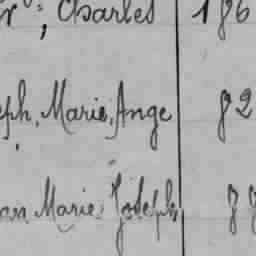 Charles 186
eph, Marie, Ange 82
an Marie Joseph